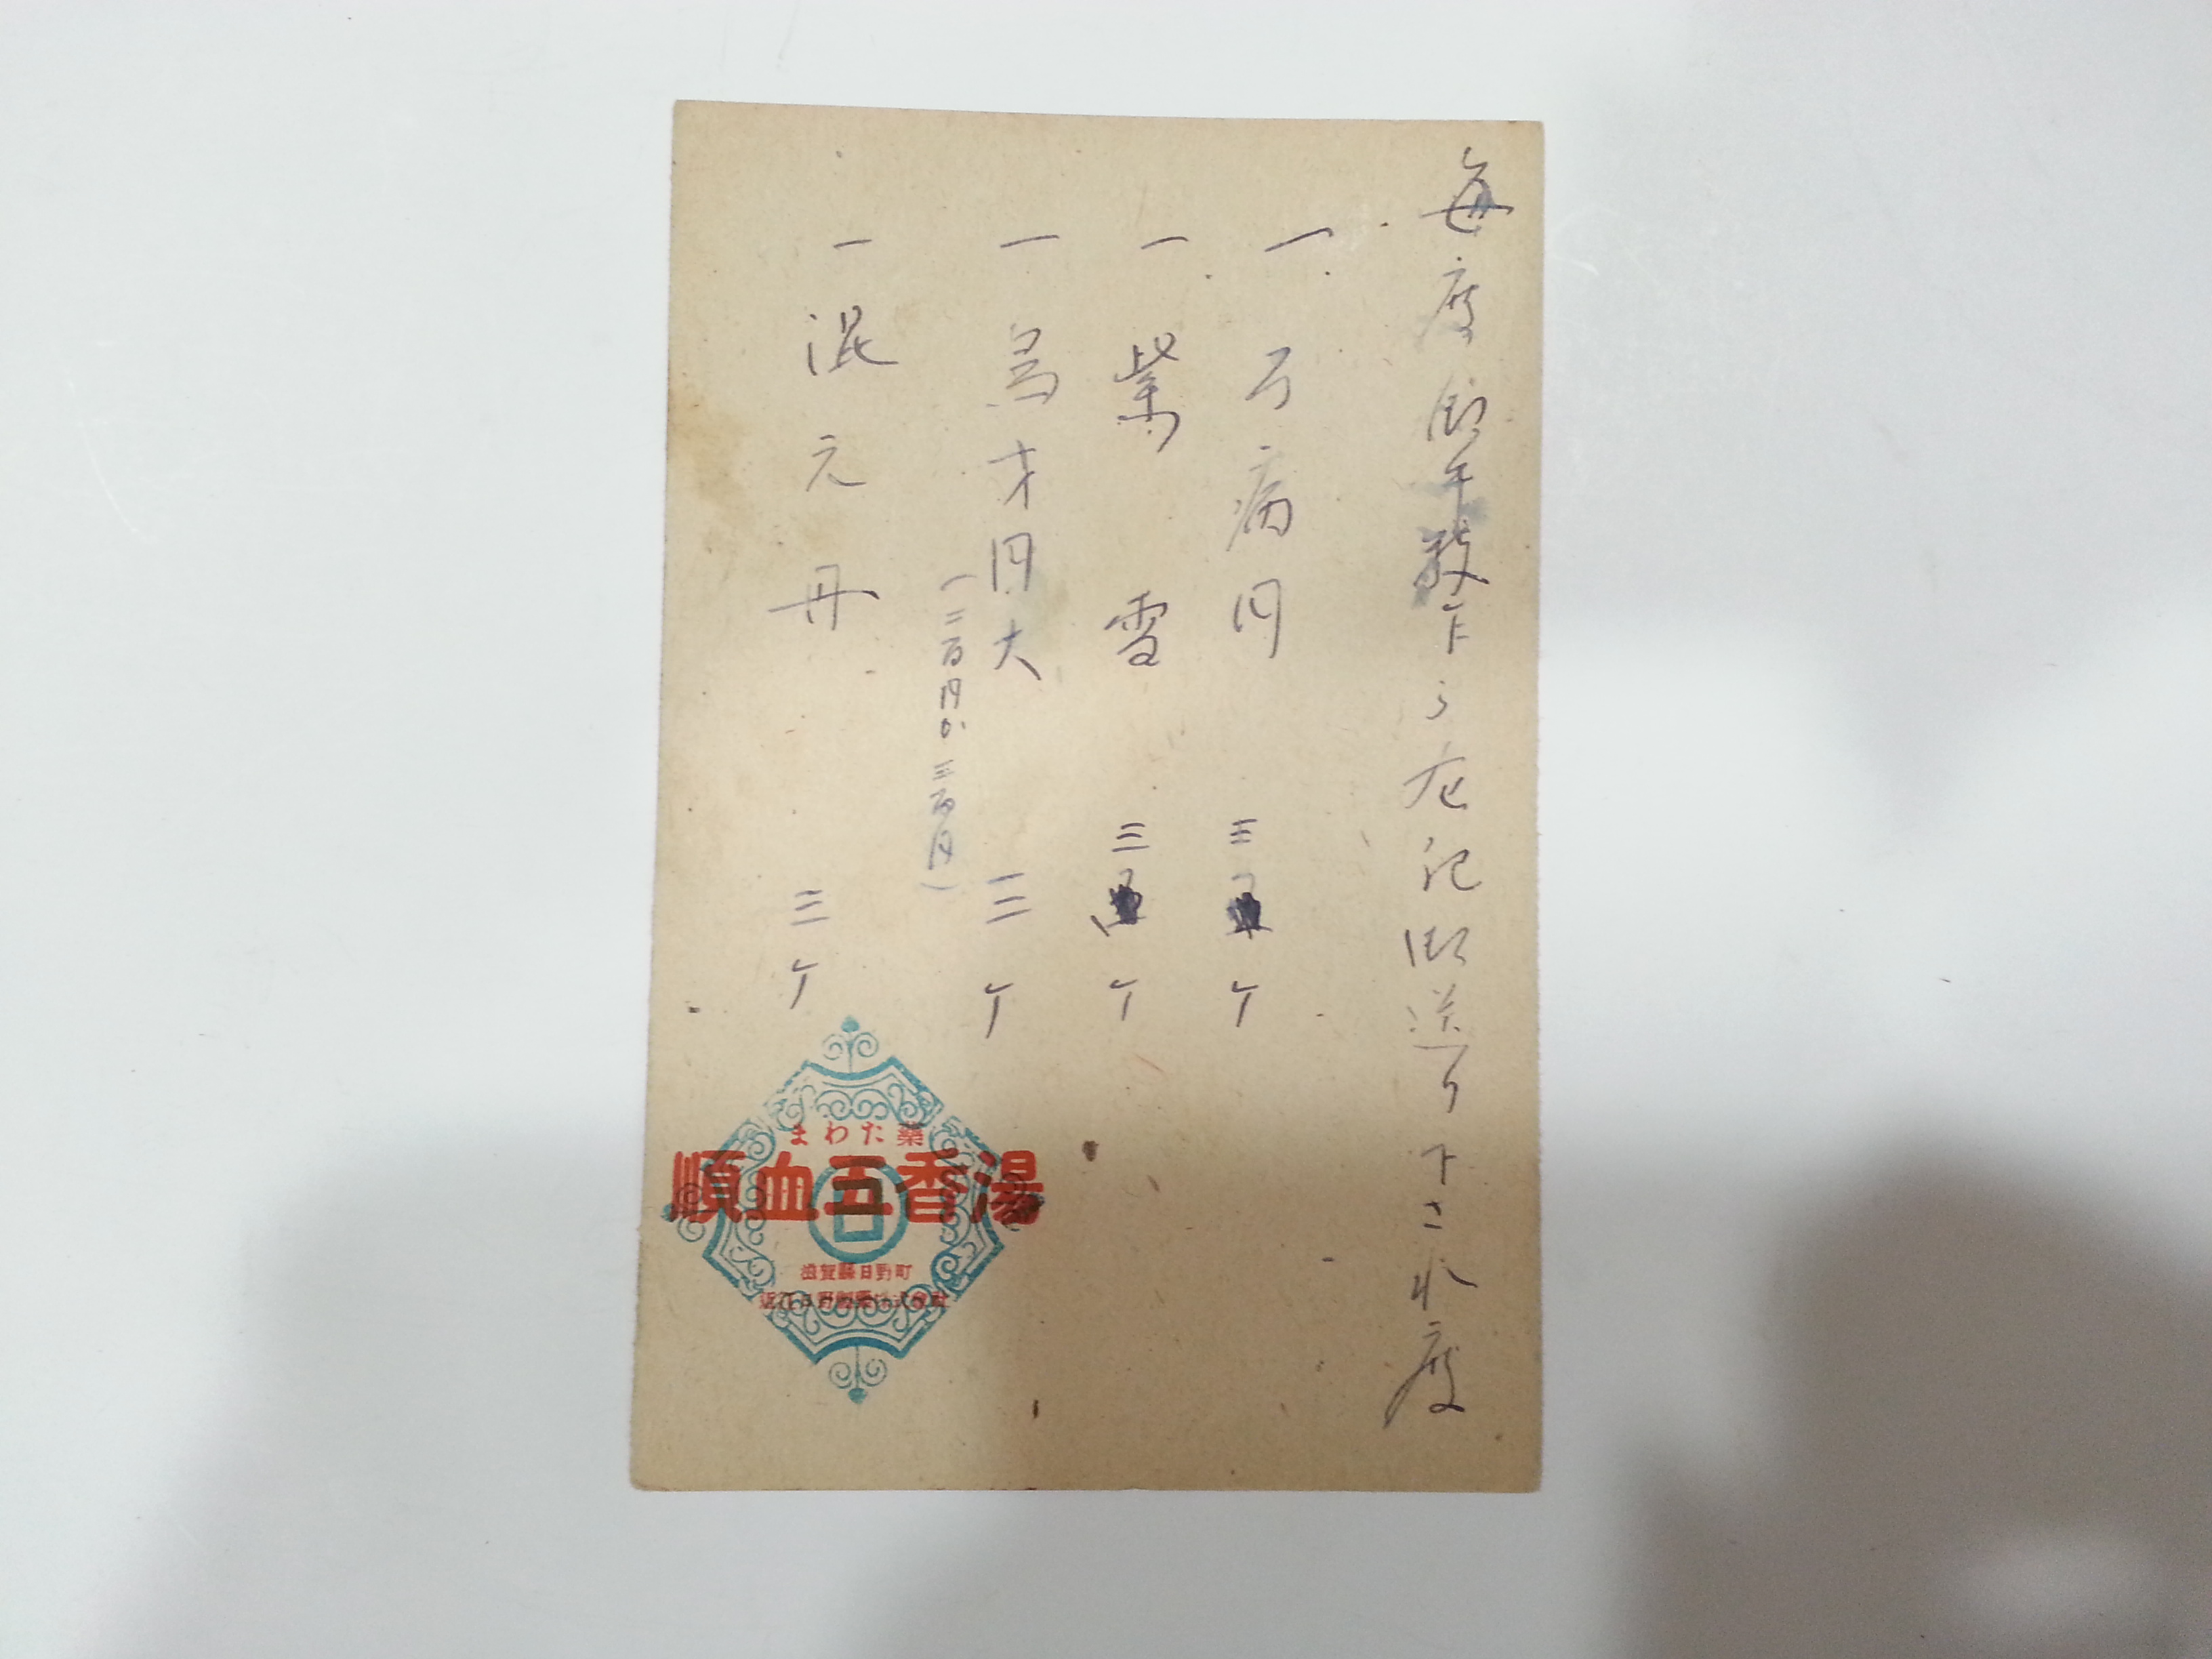 毎度御手数乍ら左記御送り下され度
一 万病円 三 ケ
一 紫雪 三 ケ
一 萬才円大 三ケ
(二百円か三百円)
一 混元丹 三ケ
まわた薬
順血五香湯
滋賀縣日野町
近江日野製薬株式會社